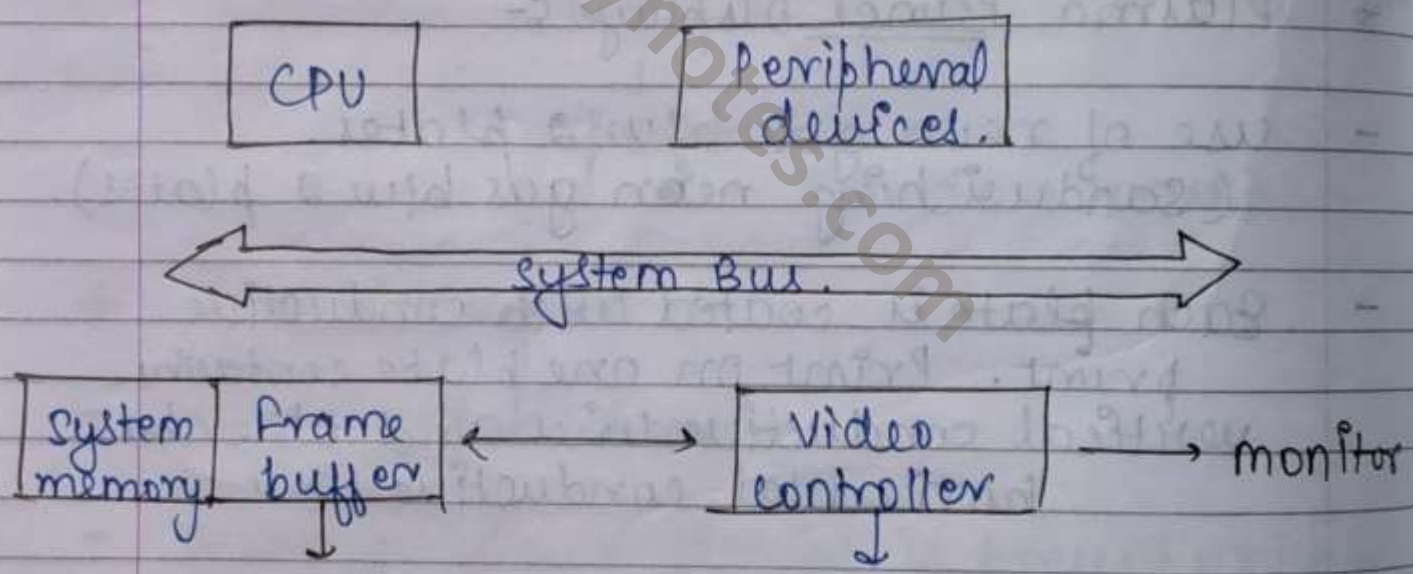 CPU
Peripheral
devices.
System Bus.
System
memory
Frame
buffer
Video
controller
monitor
notes.com